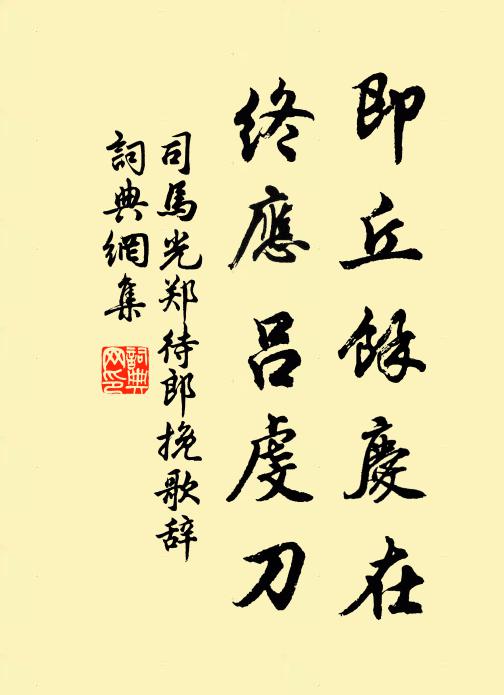 即丘餘慶在
終應吕虔刀
司馬光郑待郎挽歌辞
詞典網集
詞典
网印